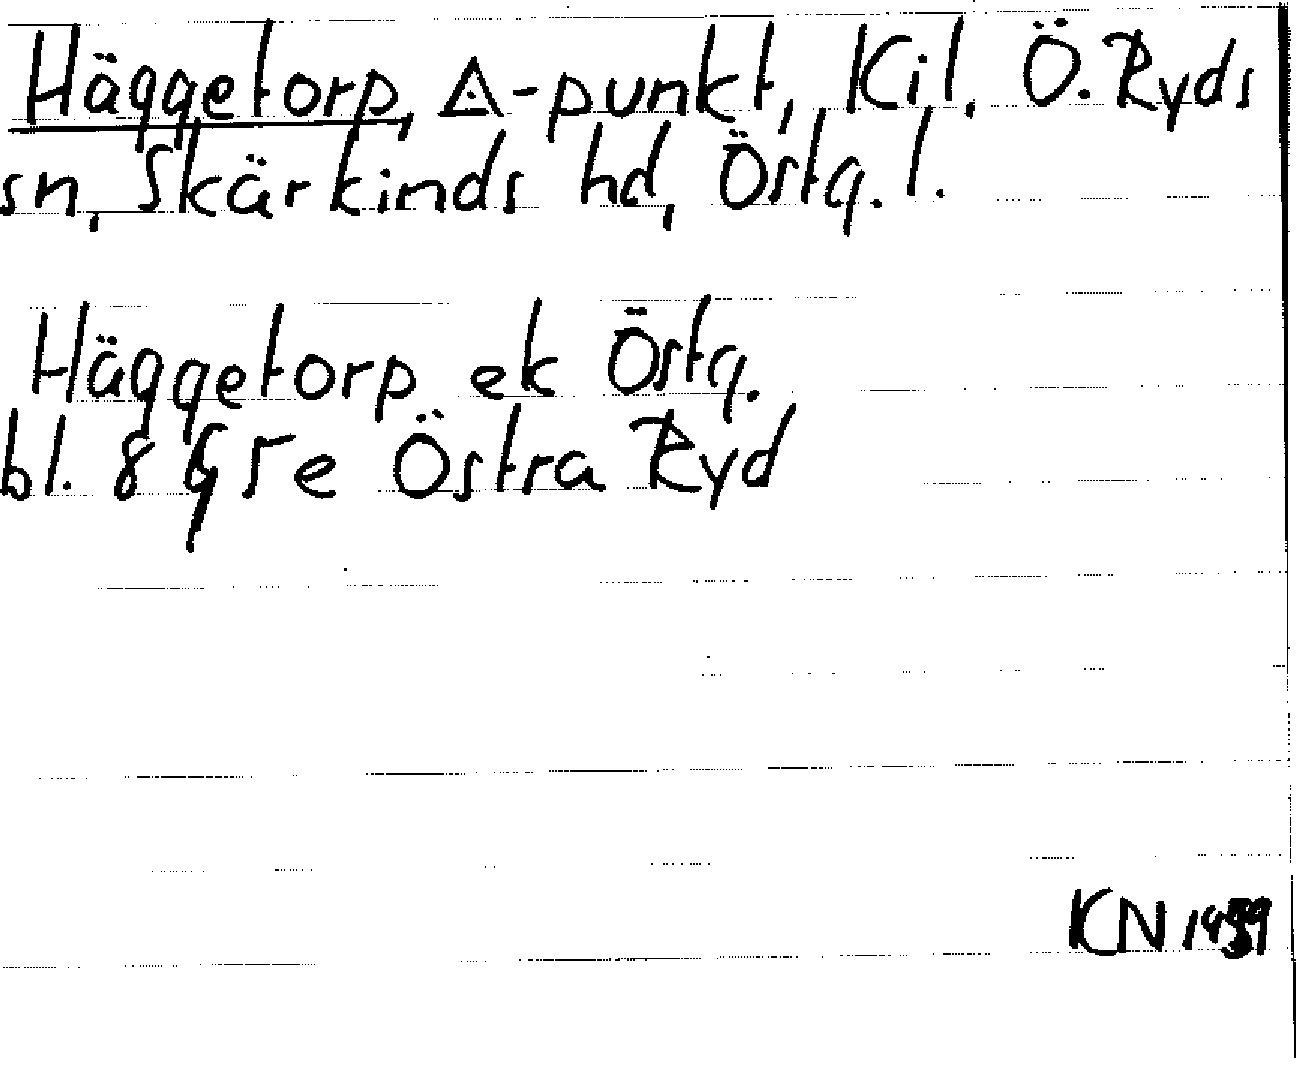 Häggetorp, ◬-punkt, Kil, Ö. Ryds
sn, Skärkinds hd, Östg. l.
Häggetorp ek Östg.
bl. 8 G 5e Östra Ryd
KN